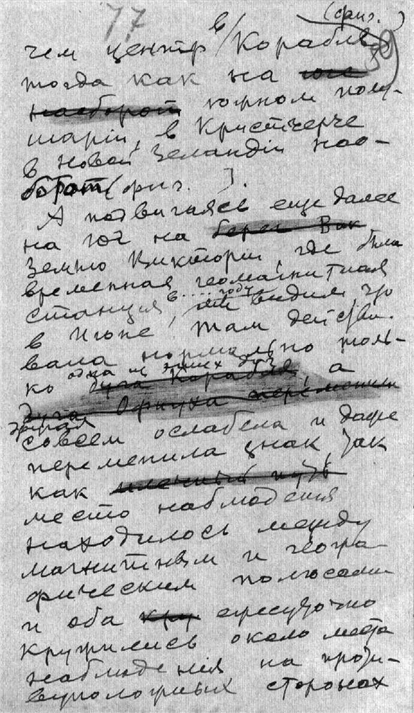 77
(физ.)
чем центр в Корабле 59
тогда как на юге
наоборот южном полу-
шаріи, в Кристчерче
в Новой Зеландіи нао-
борот (физ. ).
А подвигаясь еще далее
на юг на берег Вик
Землю Виктории, где была
временная геомагнитная
станция в ..... году, мы видим что
в Июне, там действо-
вала нормально толь-
ко одна из этих дуг дуга Корабля, а
дуга Арктура переменила
другая
совсем ослабела и даже
переменила знак, так
как млечный путь
место наблюдения
находилось между
магнитным и геогра-
фическим полюсами
и оба кру ежесуточно
кружились около места
наблюденія на проти-
вуположных сторонах